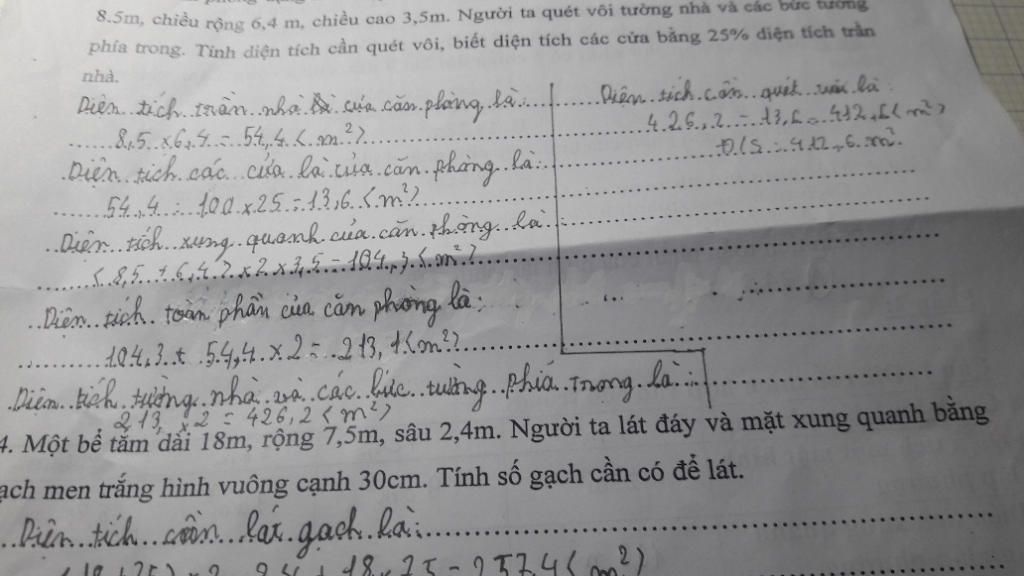 8.5m, chiều rộng 6,4 m, chiều cao 3,5m. Người ta quét vôi tường nhà và các bức tường
phía trong. Tính diện tích cần quét vôi, biết diện tích các cửa bằng 25% diện tích trần
nhà.
Diện tích trần nhà của căn phòng là:
8,5 × 6,4 = 54,4 (m²)
Diện tích các cửa là của căn phòng là:
54,4 : 100 × 25 = 13,6 (m²)
Diện tích xung quanh của căn phòng là:
(8,5 + 6,4) × 2 × 3,5 = 104,3 (m²)
Diện tích toàn phần của căn phòng là:
104,3 + 54,4 × 2 = 213,1 (m²)
Diện tích tường nhà và các bức tường phía trong là:
213, × 2 = 426,2 (m²)
Diện tích cần quét vôi là:
426,2 - 13,6 = 412,6 (m²)
Đ/S: 412,6 m²
4. Một bể tắm dài 18m, rộng 7,5m, sâu 2,4m. Người ta lát đáy và mặt xung quanh bằng
ạch men trắng hình vuông cạnh 30cm. Tính số gạch cần có để lát.
Diện tích cần lát gạch là:
= 257,4 (m²)